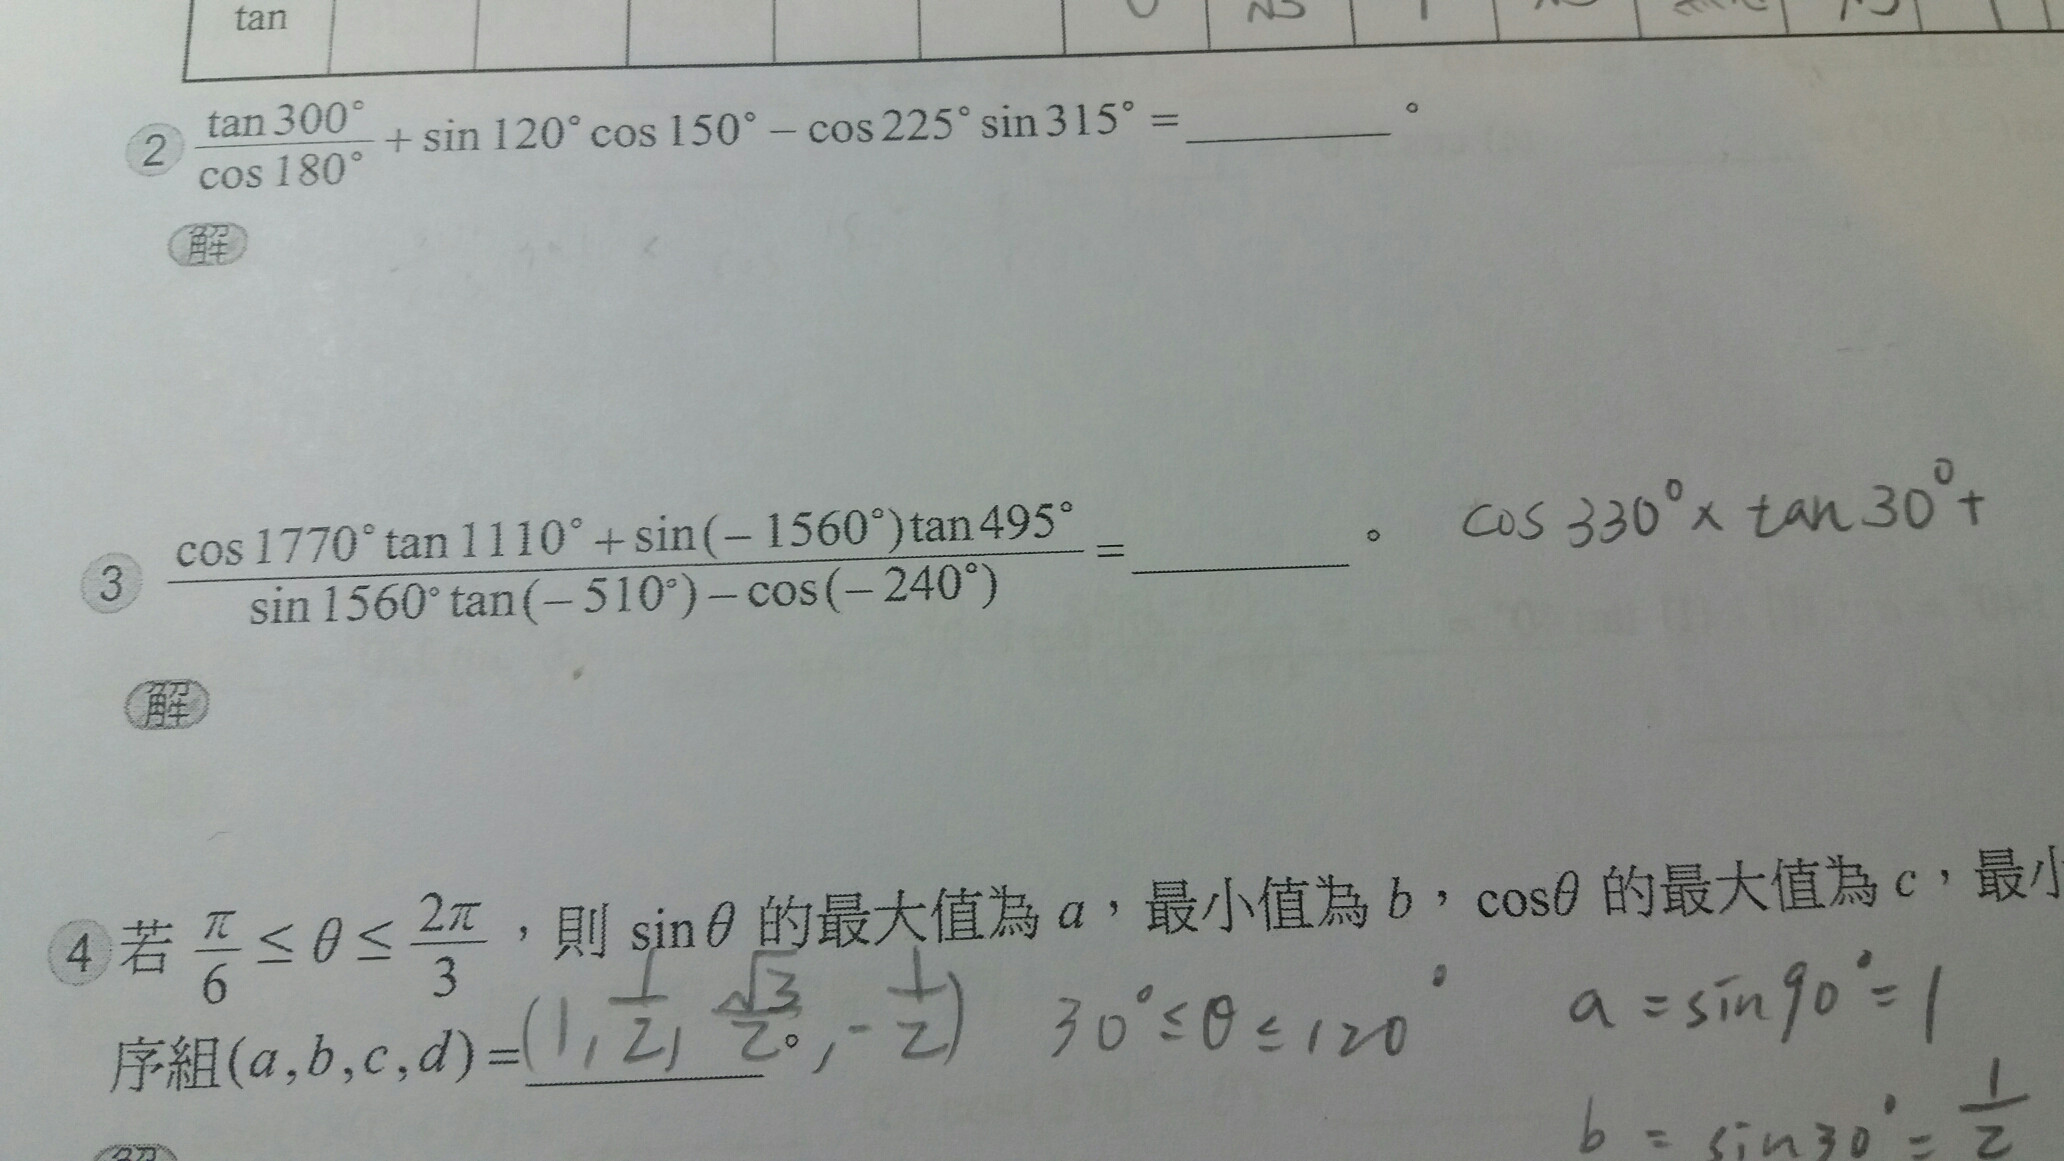 tan
② tan 300° / cos 180° + sin 120° cos 150° − cos 225° sin 315° = ______ 。
解
③ cos 1770° tan 1110° + sin(− 1560°) tan 495° / sin 1560° tan(− 510°) − cos(− 240°) = ______ 。 cos 330° × tan 30° +
解
④ 若 π/6 ≤ θ ≤ 2π/3 ,則 sinθ 的最大值為 a,最小值為 b,cosθ 的最大值為 c,最小
序組(a,b,c,d)=(1, 1/2, √3/2, -1/2) 。 30° ≤ θ ≤ 120° a = sin90° = 1
b = sin30° = 1/2
解